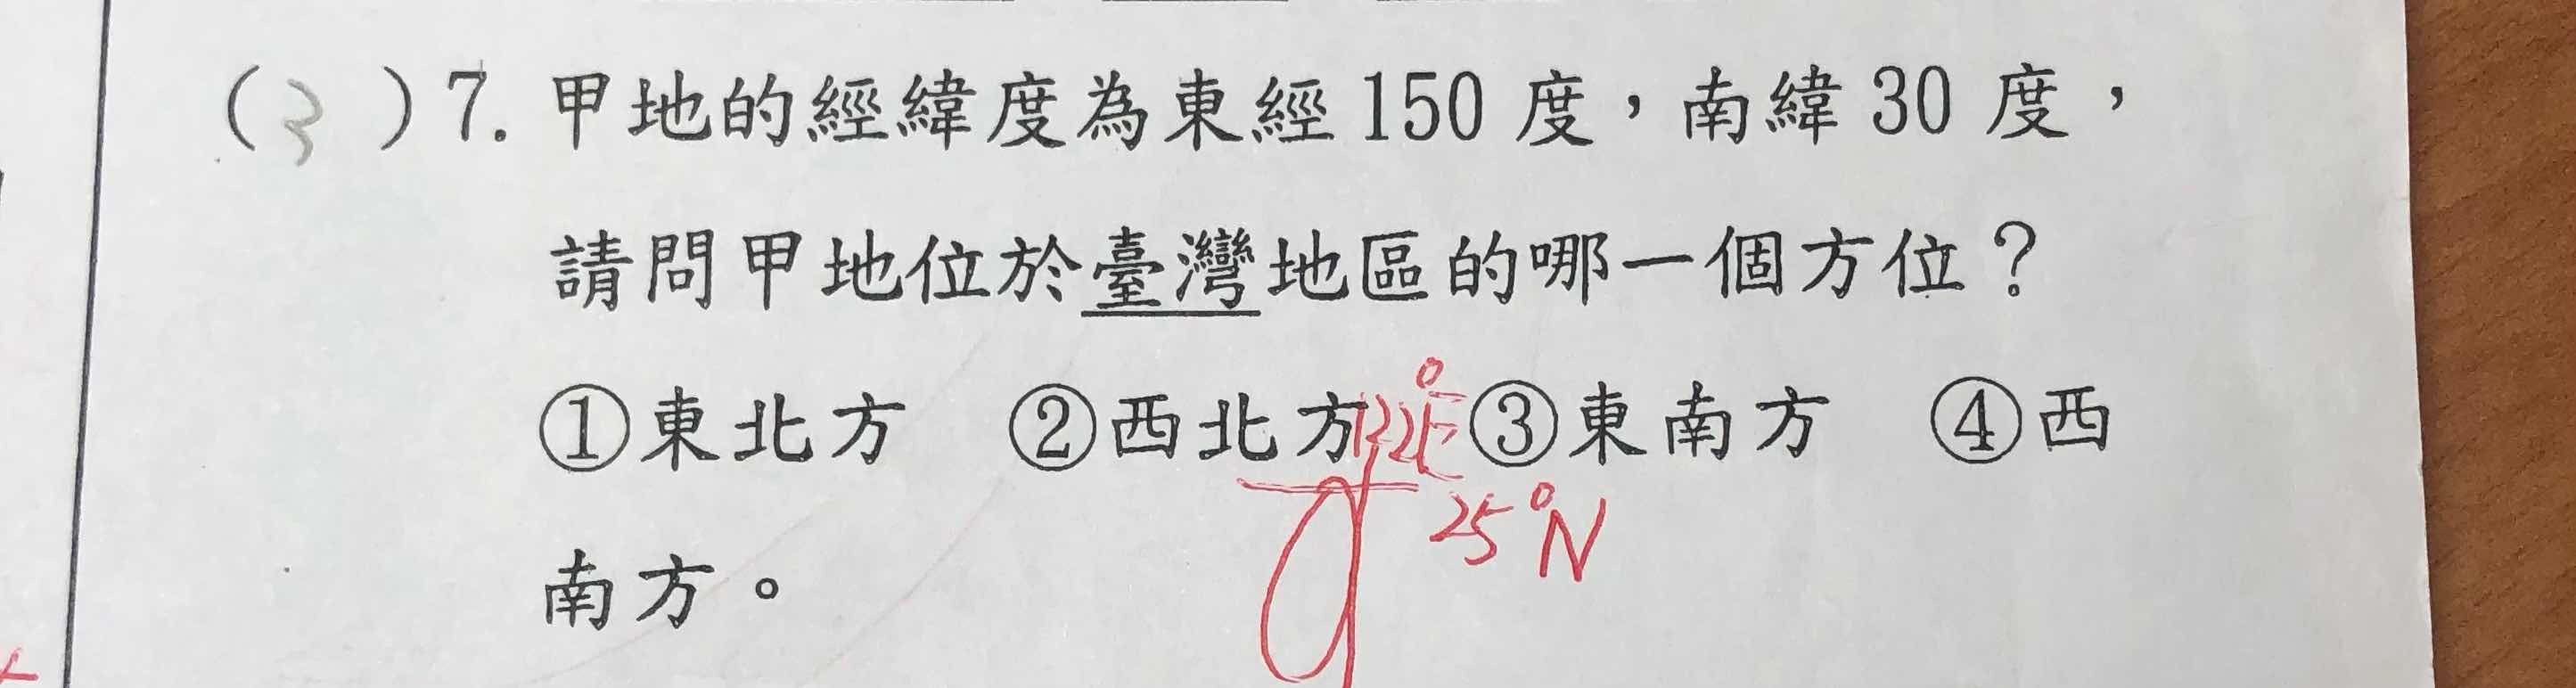 (3)7.甲地的經緯度為東經150度，南緯30度，
請問甲地位於臺灣地區的哪一個方位？
①東北方 ②西北方 122°E ③東南方 ④西
25°N
南方。